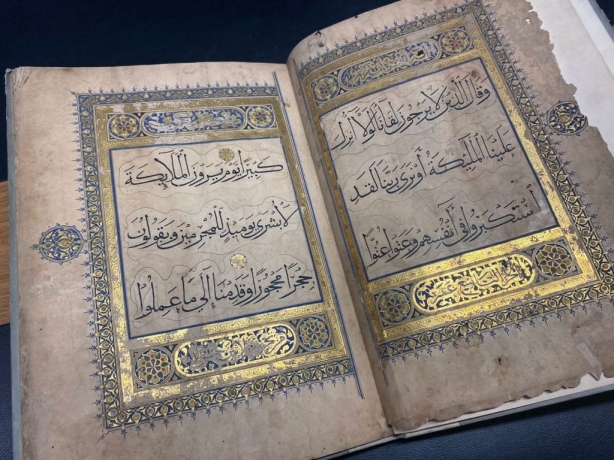 وقال الذين لا يرجون لقانا لولا انزل
علينا الملىكة او نرى ربنا لقد
استكبروا فى انفسهم وعتوا عتوا
كبيرا يوم يرون الملايكة
لا بشرى يوميذ للمجرمين ويقولون
حجرا محجورا وقدمنا الى ما عملوا